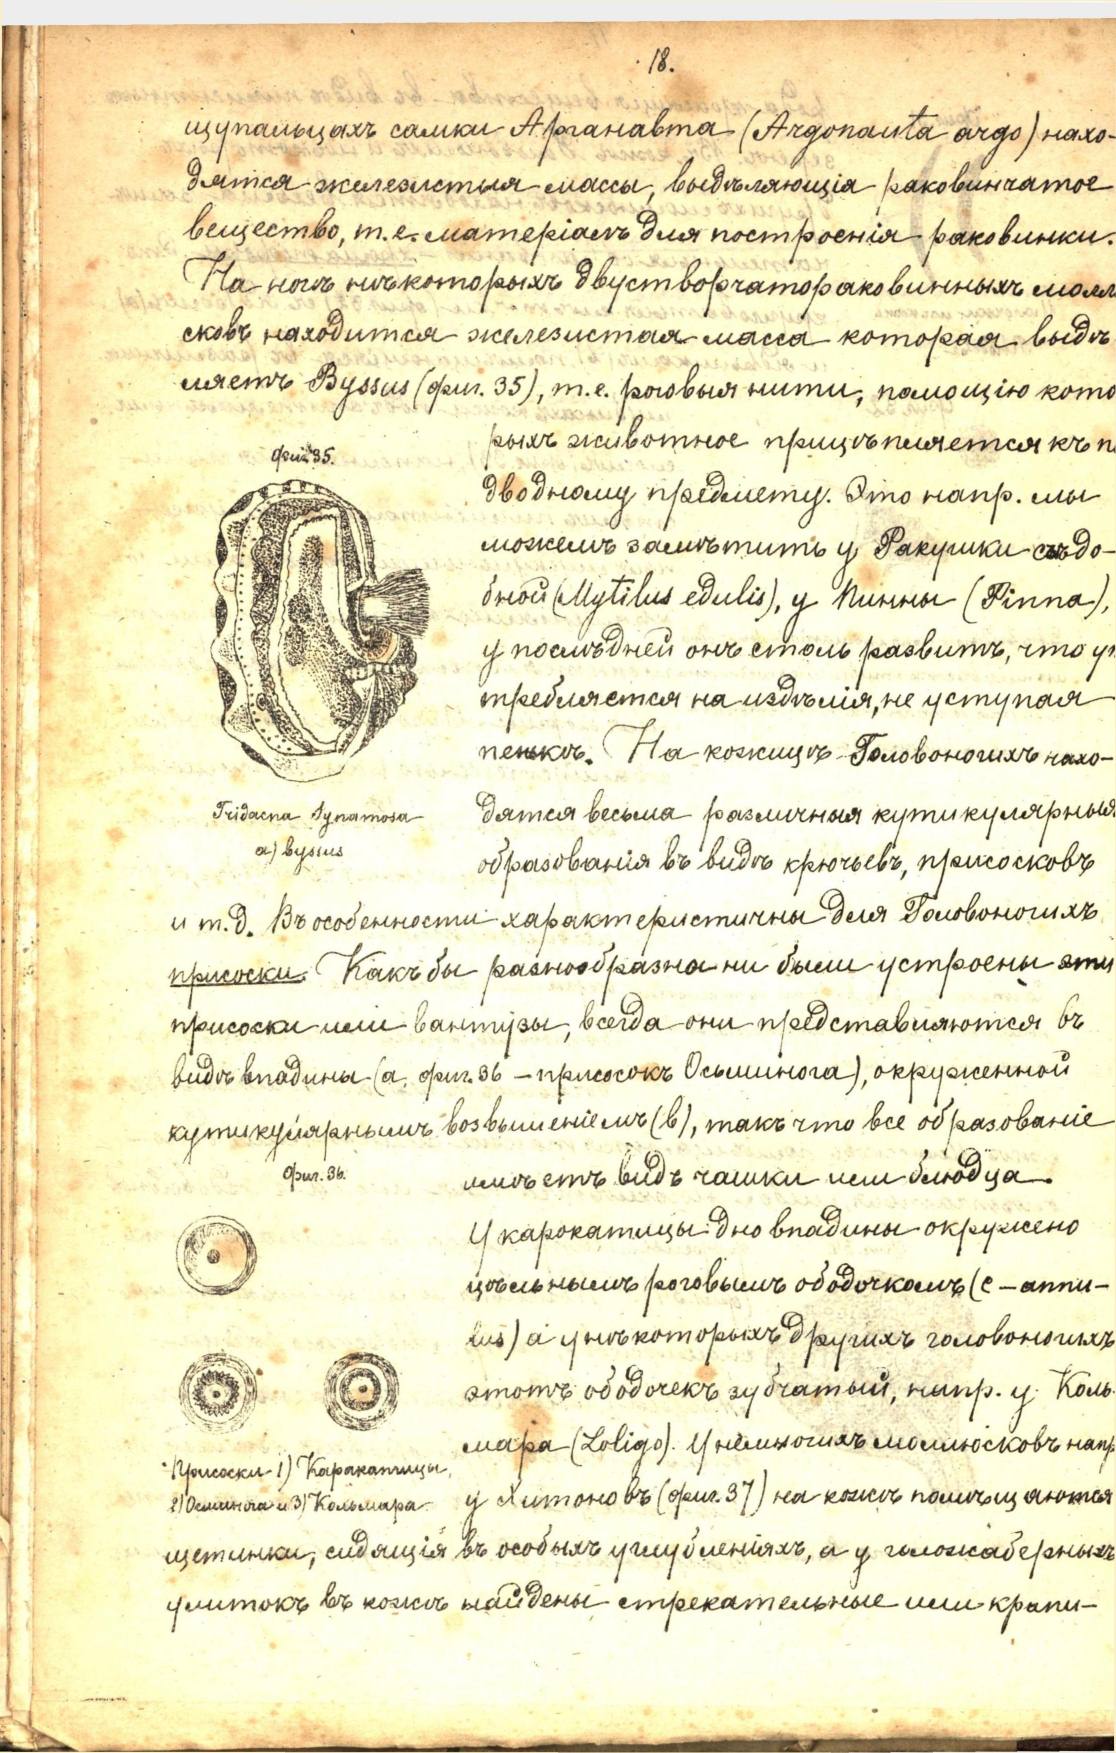 18.
щупальцахъ самки Арганавта (Argonauta argo) нахо-
дятся железистыя массы, выдѣляющія раковинчатое
вещество, т.е. матеріалъ для построенія раковинки.
На ногѣ нѣкоторыхъ двустворчатораковинныхъ молл
сковъ находится железистая масса которая выдѣ
ляетъ Byssus (фиг. 35), т.е. роговыя нити, помощію кото
рыхъ животное прицѣпляется къ п
фиг. 35.
дводному предмету. Это напр. мы
можемъ замѣтить у Ракушки съѣдо-
бной (Mytilus edulis), у Пинны (Pinna),
у послѣдней онъ столь развитъ, что уп
требляется на издѣлія, не уступая
пенькѣ. На кожицѣ Головоногихъ нахо-
Tridacna
a) byssus
дятся весьма различныя кутикулярныя
образованія въ видѣ крючьевъ, присосковъ
и т.д. Въ особенности характеристичны для Головоногихъ
присоски. Какъ бы разнообразна ни были устроены эти
присоски или вантузы, всегда они представляются въ
видѣ впадины (а. фиг. 36 – присосокъ Осьминога), окруженной
кутикулярнымъ возвышеніемъ (в), такъ что все образованіе
Фиг. 36.
имѣетъ видъ чашки или блюдца.
У карокатицы дно впадины окружено
цѣльнымъ роговымъ ободочкомъ (с – annu-
lus) а у нѣкоторыхъ другихъ головоногихъ
этотъ ободочекъ зубчатый, напр. у Коль-
мара (Loligo). У немногихъ моллюсковъ напр
Присоски 1) Каракатицы,
2) Осминога и 3) Кольмара
у Хитоновъ (фиг. 37) на кожѣ помѣщаются
щетинки, сидящія въ особыхъ углубленіяхъ, а у голожаберныхъ
улитокъ въ кожѣ найдены стрекательные или крапи-